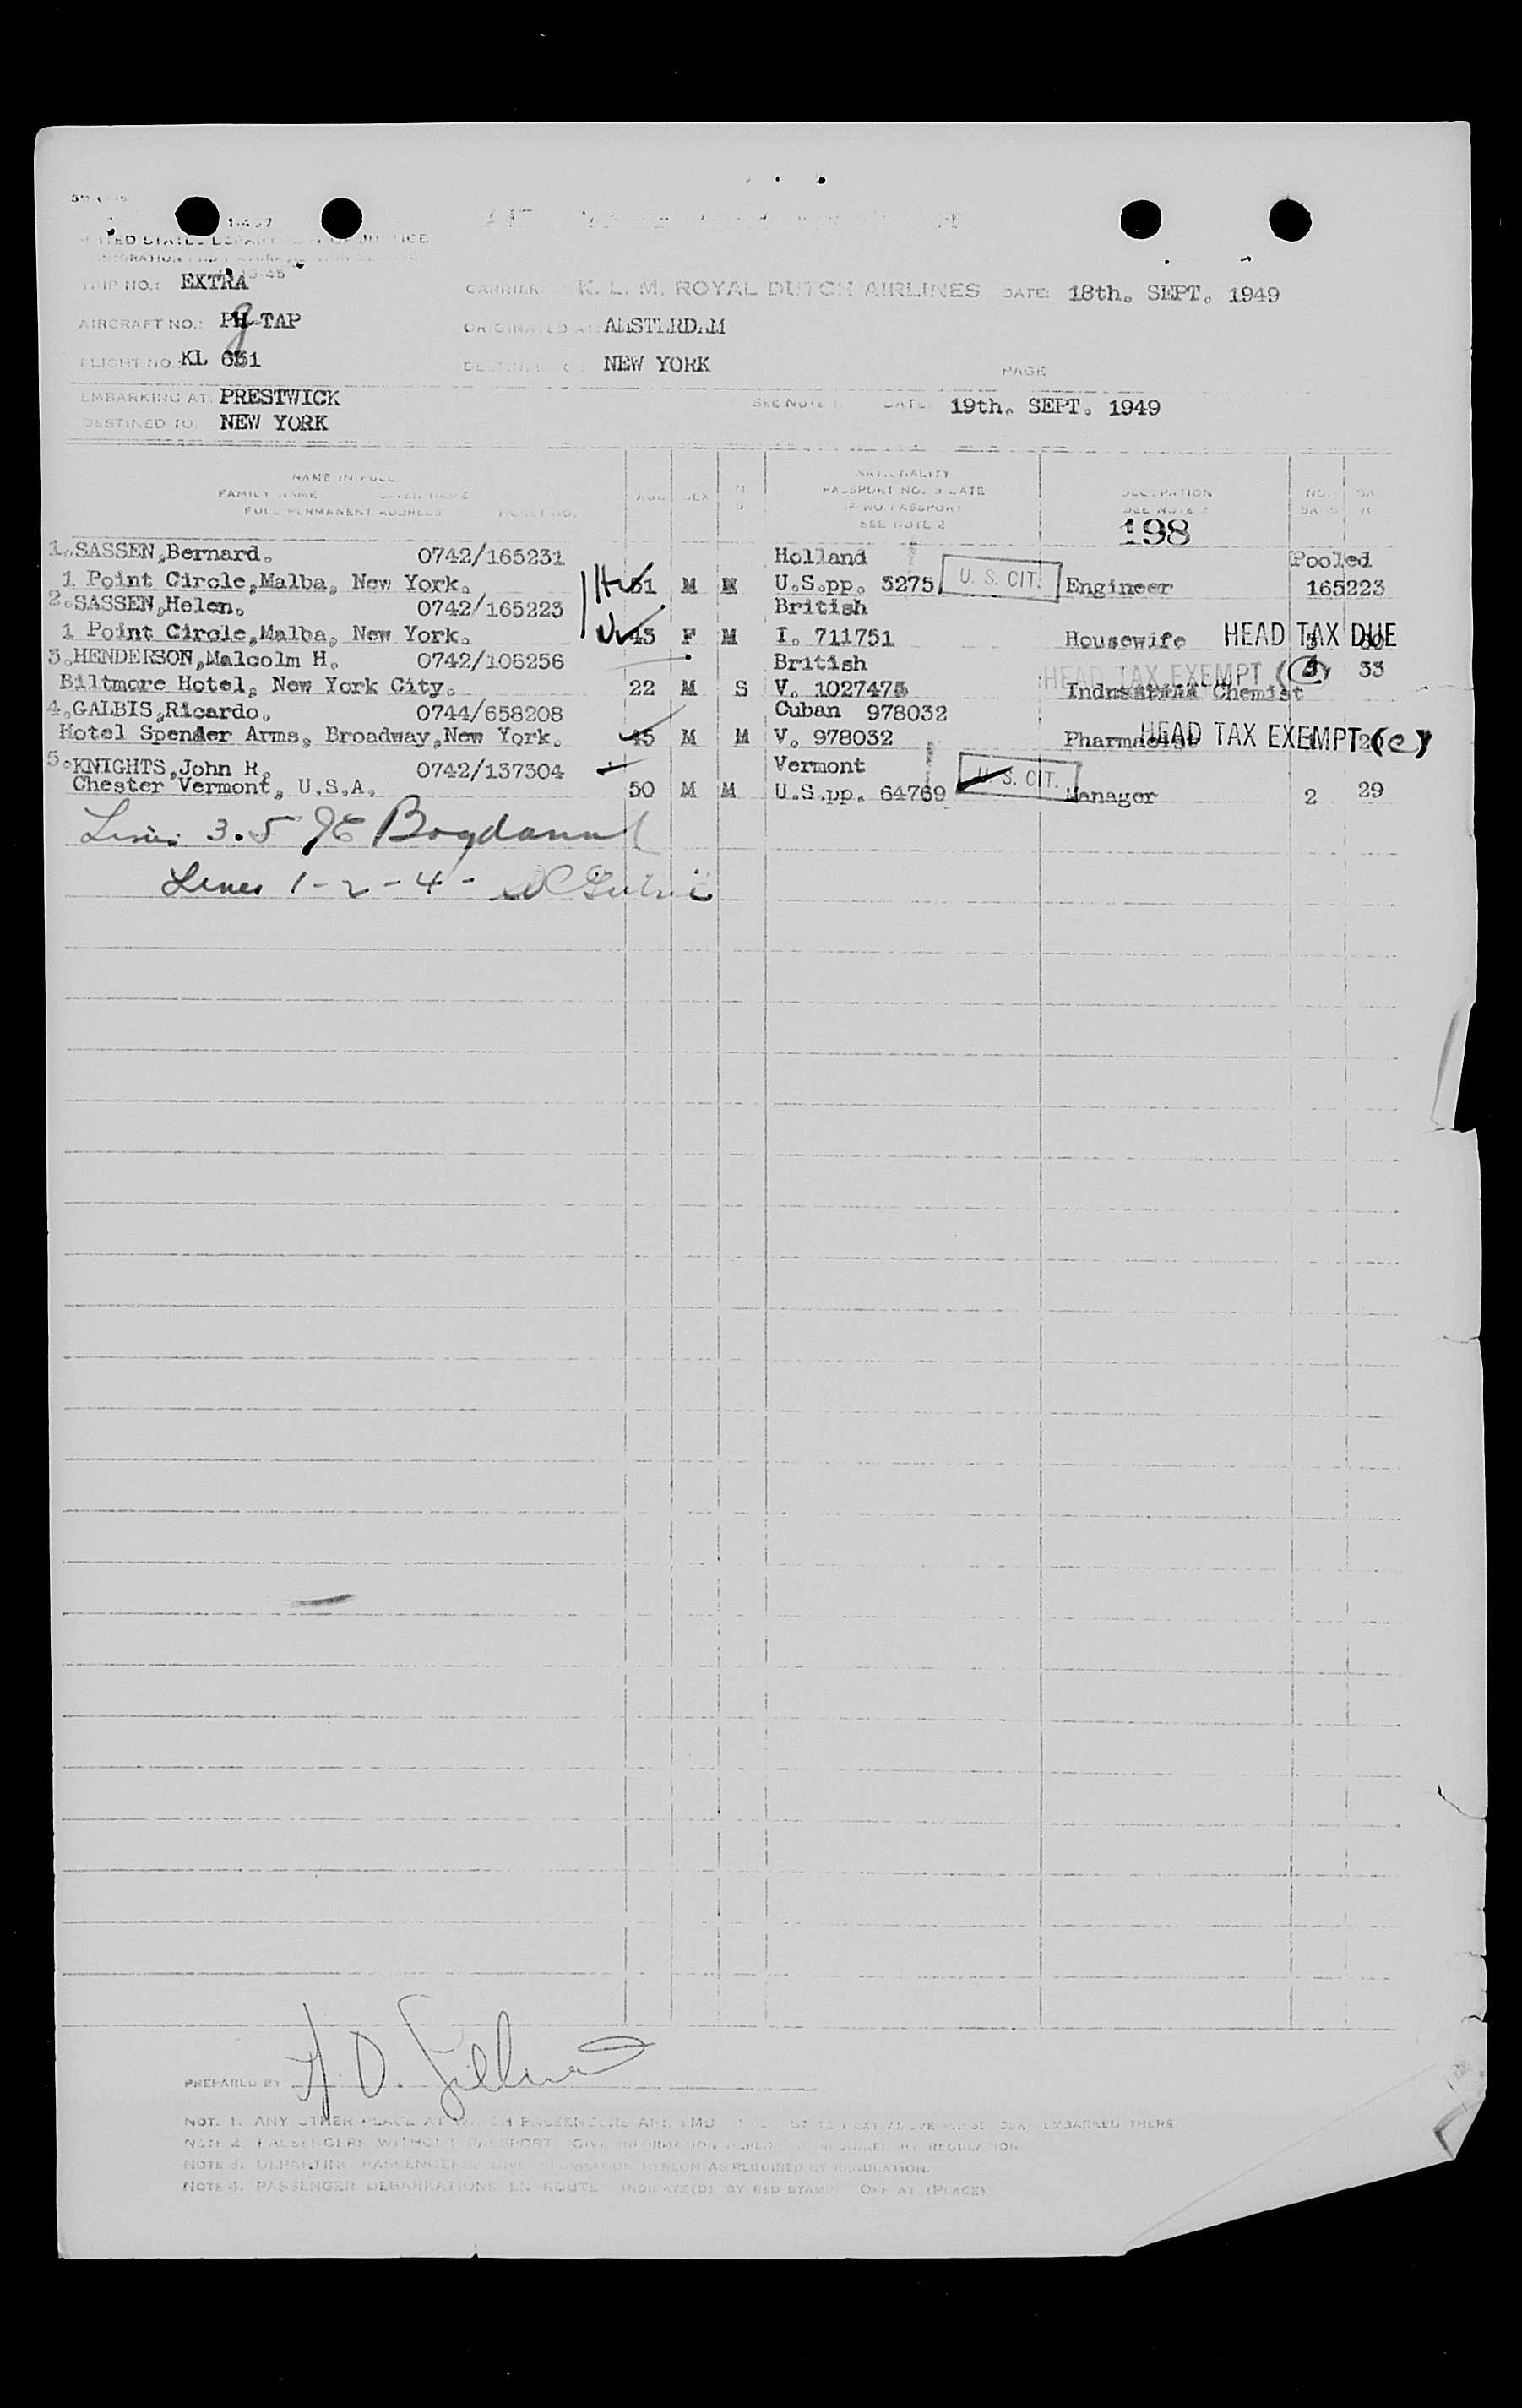 UNITED STATES DEPARTMENT OF JUSTICE
TRIP NO.: EXTRA
CARRIER: K. L. M. ROYAL DUTCH AIRLINES DATE: 18th. SEPT. 1949
AIRCRAFT NO.: PH-TAP
ORIGINATED AT: AMSTERDAM
FLIGHT NO.: KL 631
NEW YORK
PAGE
EMBARKING AT: PRESTWICK
SEE NOTE 1. DATE: 19th. SEPT. 1949
DESTINED TO: NEW YORK
NAME IN FULL
FAMILY NAME GIVEN NAME
FULL PERMANENT ADDRESS TICKET NO.
AGE SEX M S
NATIONALITY
PASSPORT NO. & DATE
IF NO PASSPORT
SEE NOTE 2
OCCUPATION
SEE NOTE
198
1.SASSEN,Bernard. 0742/165231 Holland Pooled
1 Point Circle,Malba, New York. 51 M M U.S.pp. 3275 U. S. CIT. Engineer 165223
2.SASSEN,Helen. 0742/165223 British
1 Point Circle,Malba, New York. 43 F M I. 711751 Housewife HEAD TAX DUE
3.HENDERSON,Malcolm H. 0742/106256 British HEAD TAX EXEMPT 33
Biltmore Hotel, New York City. 22 M S V. 1027475 Industrial Chemist
4.GALBIS,Ricardo. 0744/658208 Cuban 978032
Hotel Spenser Arms, Broadway,New York. 45 M M V. 978032 Pharmacist HEAD TAX EXEMPT (C)
5.KNIGHTS,John R. 0742/137304 Vermont
Chester Vermont, U.S.A. 50 M M U.S.pp. 64769 U. S. CIT. Manager 2 29
Lines 3.5
Lines 1-2-4-
PREPARED BY
NOTE 1. ANY OTHER PLACE AT WHICH PASSENGERS ARE EMBARKED THERE
NOTE 2. PASSENGERS WITHOUT PASSPORT GIVE INFORMATION REQUIRED BY REGULATION.
NOTE 3. DEPARTING PASSENGERS. GIVE INFORMATION HEREON AS REQUIRED BY REGULATION.
NOTE 4. PASSENGER DEBARKATIONS EN ROUTE INDICATE(D) BY RED STAMP OFF AT (PLACE)